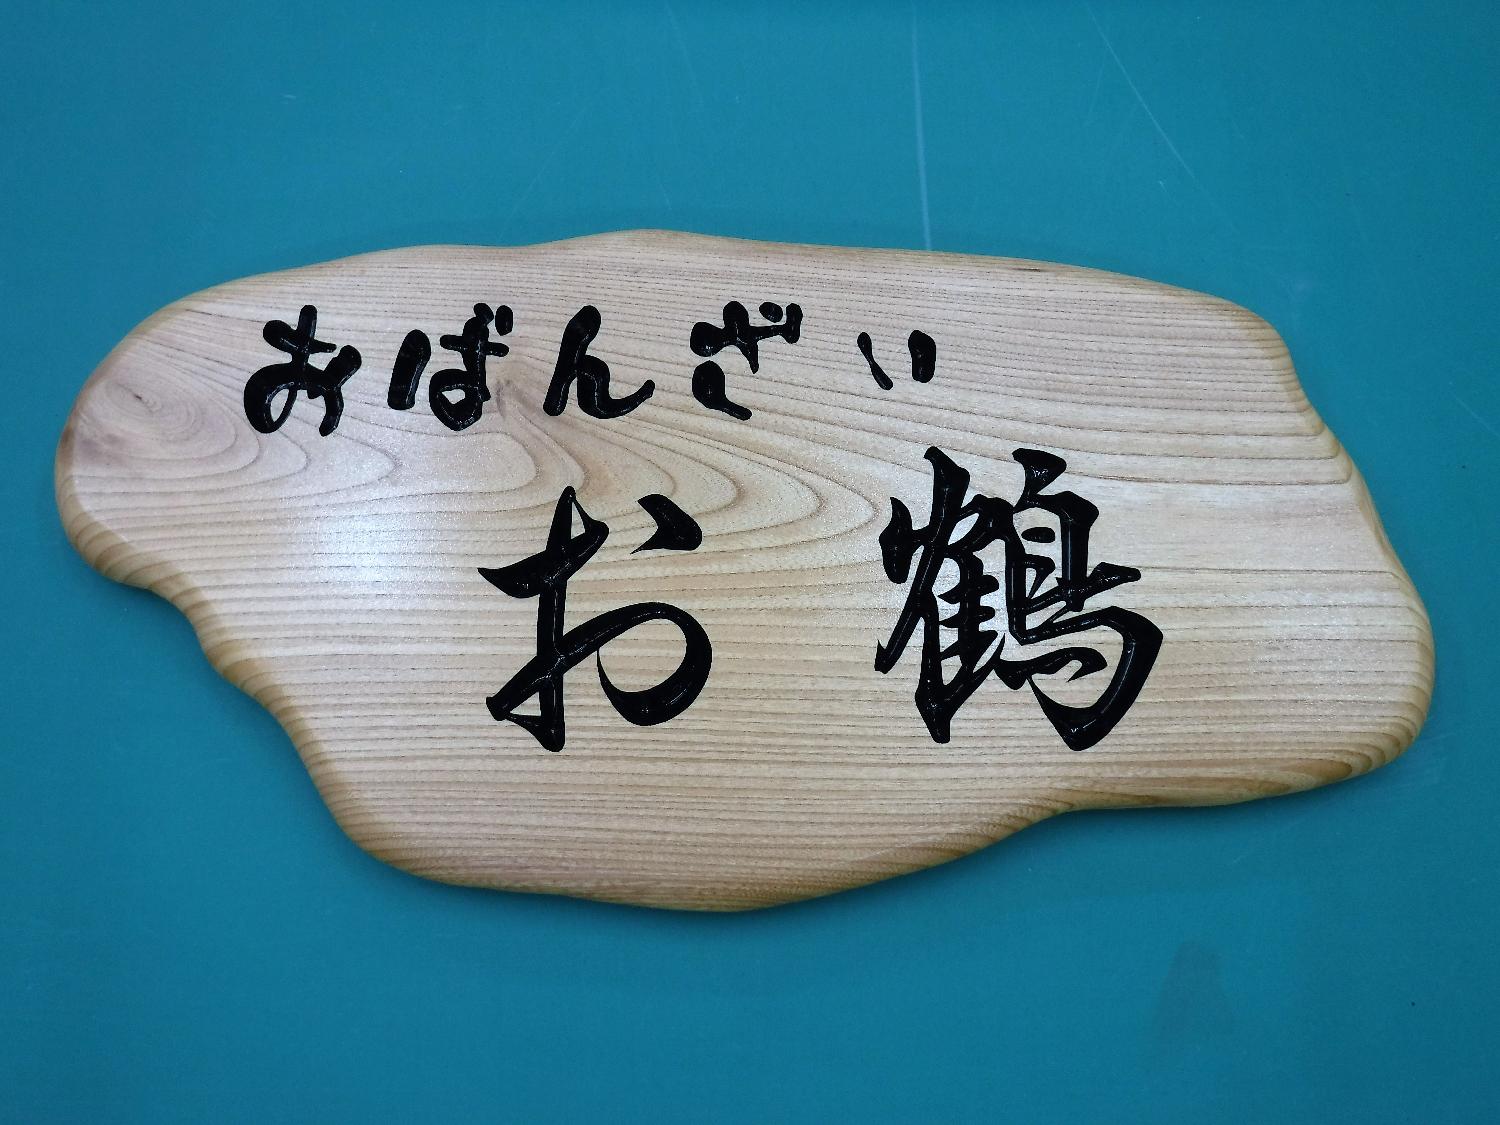 おばんざい
お鶴